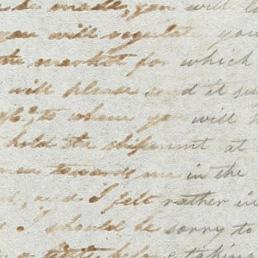 be made, you will
you will regulate you
the market for which
will please send it
to whom you will
hold the shipment at
towards me in the
and I felt rather in
I should be sorry to
before taking